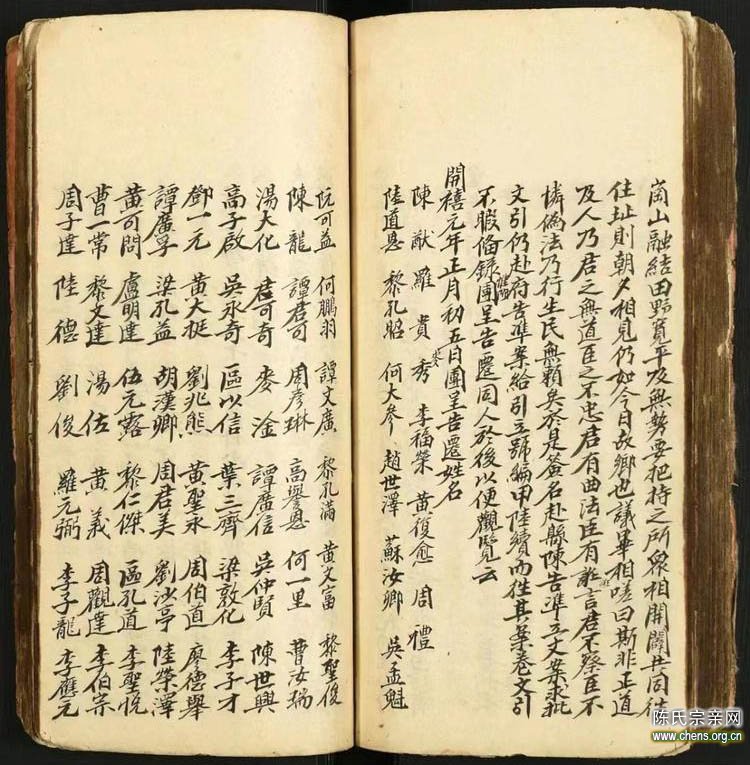 崗山融結田野寬平及無勢要把持之所衆相開闢共同往
住址則朝夕相見仍如今日故鄉也議畢相嗟曰斯非正道
及人乃君之無道臣之不忠君有曲法臣有訛言君不察臣不
憐偽法乃行生民無賴矣於是簽名赴縣陳告準立文案求批
文引仍赴府告準案給引立號編甲陸續而徃其案卷文引
不暇俻錄團呈告遷同人於後以便觀覽云
開禧元年正月初五日團呈告遷姓名
陳猷 羅貴 麥秀 李福榮 黃復愈 周禮
陸道恩 黎孔昭 何大參 趙世澤 蘇汝卿 吳孟魁
阮可益 何鵬羽 譚文廣 黎孔滿 黃文富 黎聖俊
陳龍 譚君可 周彥琳 高譽恩 何一里 曹汝瑞
湯大化 君可奇 麥淦 譚廣信 吳仲賢 陳世興
高子啟 吳永奇 區以信 葉三齊 梁敦化 李子才
鄧一元 黃大挺 劉兆熊 黃聖永 周伯道 廖德舉
譚廣孚 梁孔益 胡漢卿 周君美 劉沙亭 陸榮澤
黃可問 盧明達 伍元露 黎仁傑 區孔道 李聖悅
曹一常 黎文達 湯伍 黃義 周觀達 李伯宗
周子達 陸德 劉俊 羅元弼 李子龍 李應元
陈氏宗亲网
www.chens.org.cn